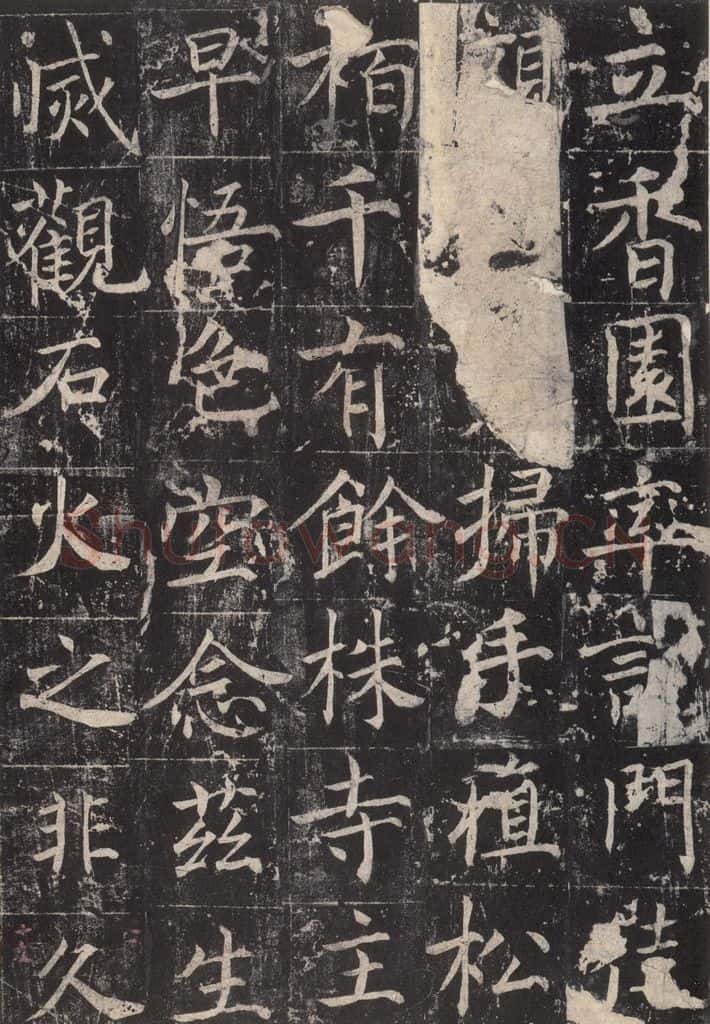 立香園率諸門徒
頭掃手植松
柏千有餘株寺主
早悟色空念茲生
滅觀石火之非久
shufawang.CN